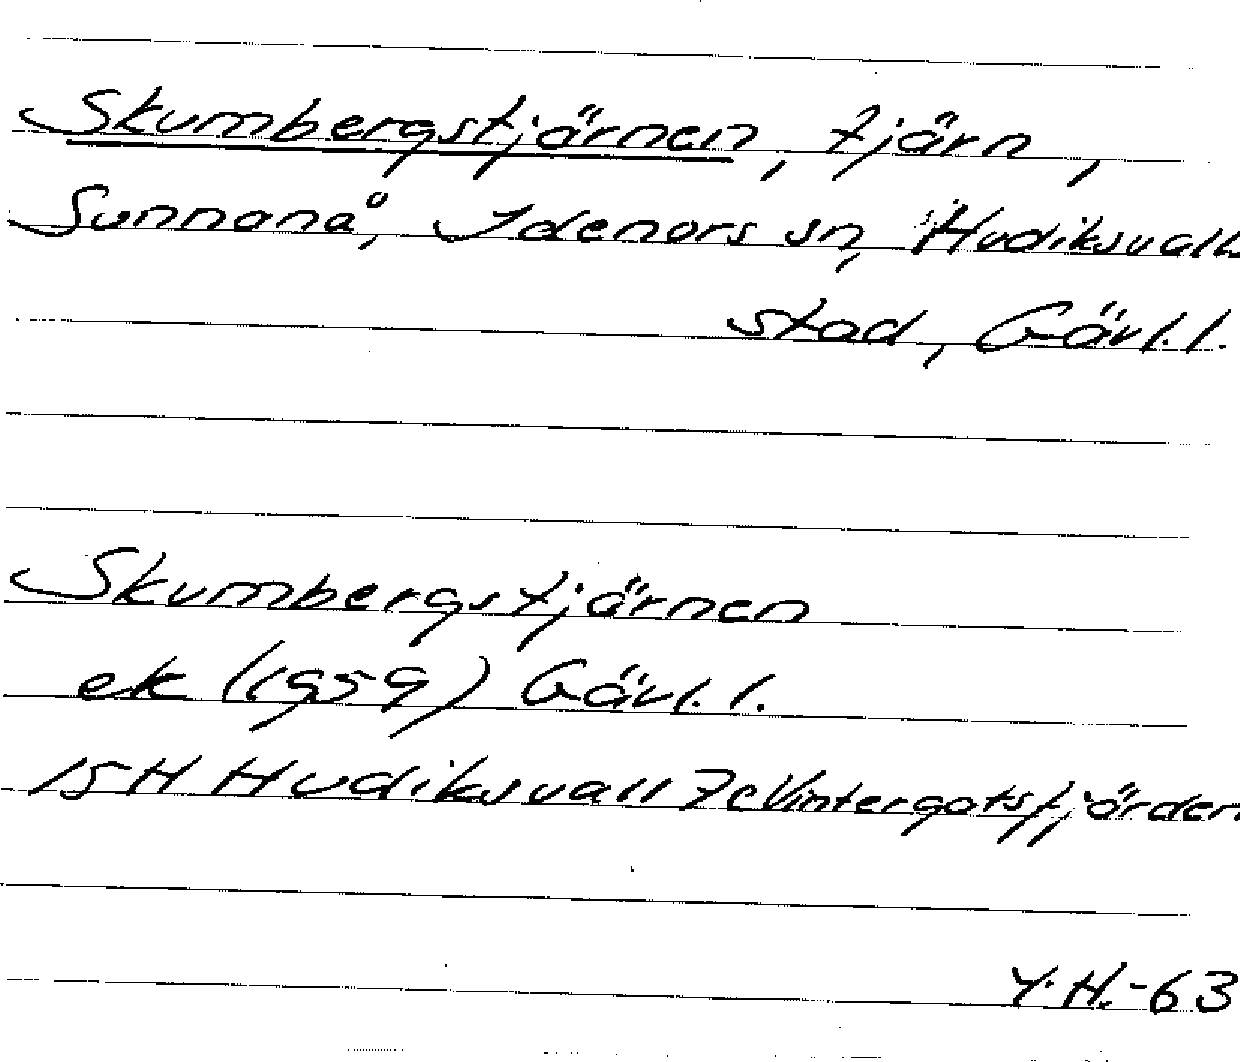 Skumbergstjärnen, tjärn,
Sunnanå, Idenors sn, Hudiksvalls
stad, Gävl.l.
Skumbergstjärnen
ek (1959) Gävl.l.
15H Hudiksvall 7c Vintergatsfjärden
Y.H.-63